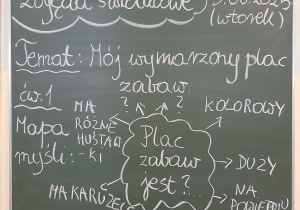 Zajęcia świetlicowe
(wtorek)
Temat: Mój wymarzony plac
zabaw.
ćw.1
Mapa
myśli:
MA
RÓŻNE
HUŚTAW
-KI
?
?
KOLOROWY
Plac
zabaw
jest?...
DUŻY
NA
POWIETRZU
MA KARUZELĘ